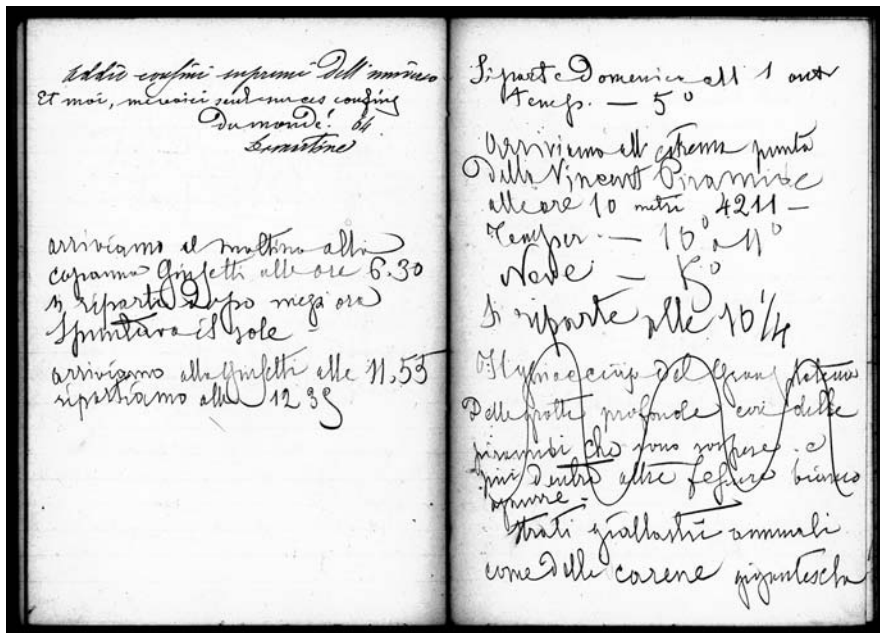 Addio confini supremi dell
Et moi, me voici seul sur ces confins
du monde! 64
Lamartine
arriviamo il mattino alla
capanna Gnifetti alle ore 6.30
si riparte dopo mezz'ora
Spuntava il sole
arriviamo alla Gnifetti alle 11,55
ripartiamo alle 12 35
Si parte Domenica all 1 ant
Temp. — 5°
Arriviamo all estrema punta
della Vincent Piramide
alle ore 10 metri 4211 —
Temper. — 10° a 11°
Neve — 5°
Si riparte alle 10 1/4
Il ghiaccio del Gran
Delle grotte profonde così delle
piramidi che sono sospese e
poi dentro altre fessure bianco
azzurre.
Strati giallastri annuali
come delle carene gigantesche